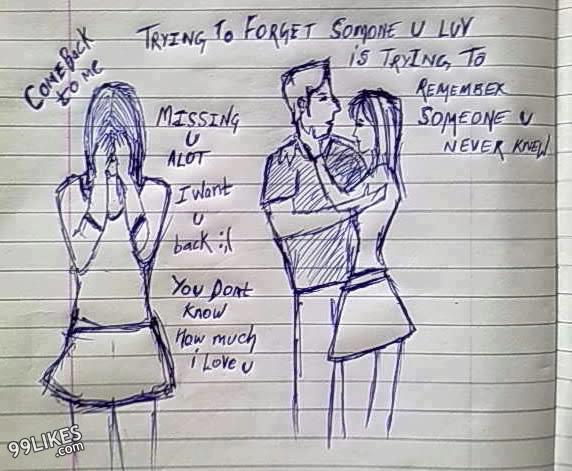 COME BACK
to me
TRYING TO FORGET SOMONE U LUV
is TRYING TO
REMEMBER
SOMEONE U
NEVER KNEW
MISSING
U
ALOT
I want
u
back :,(
YOU DONT
KNOW
How much
i LOVE u
99LIKES
.com